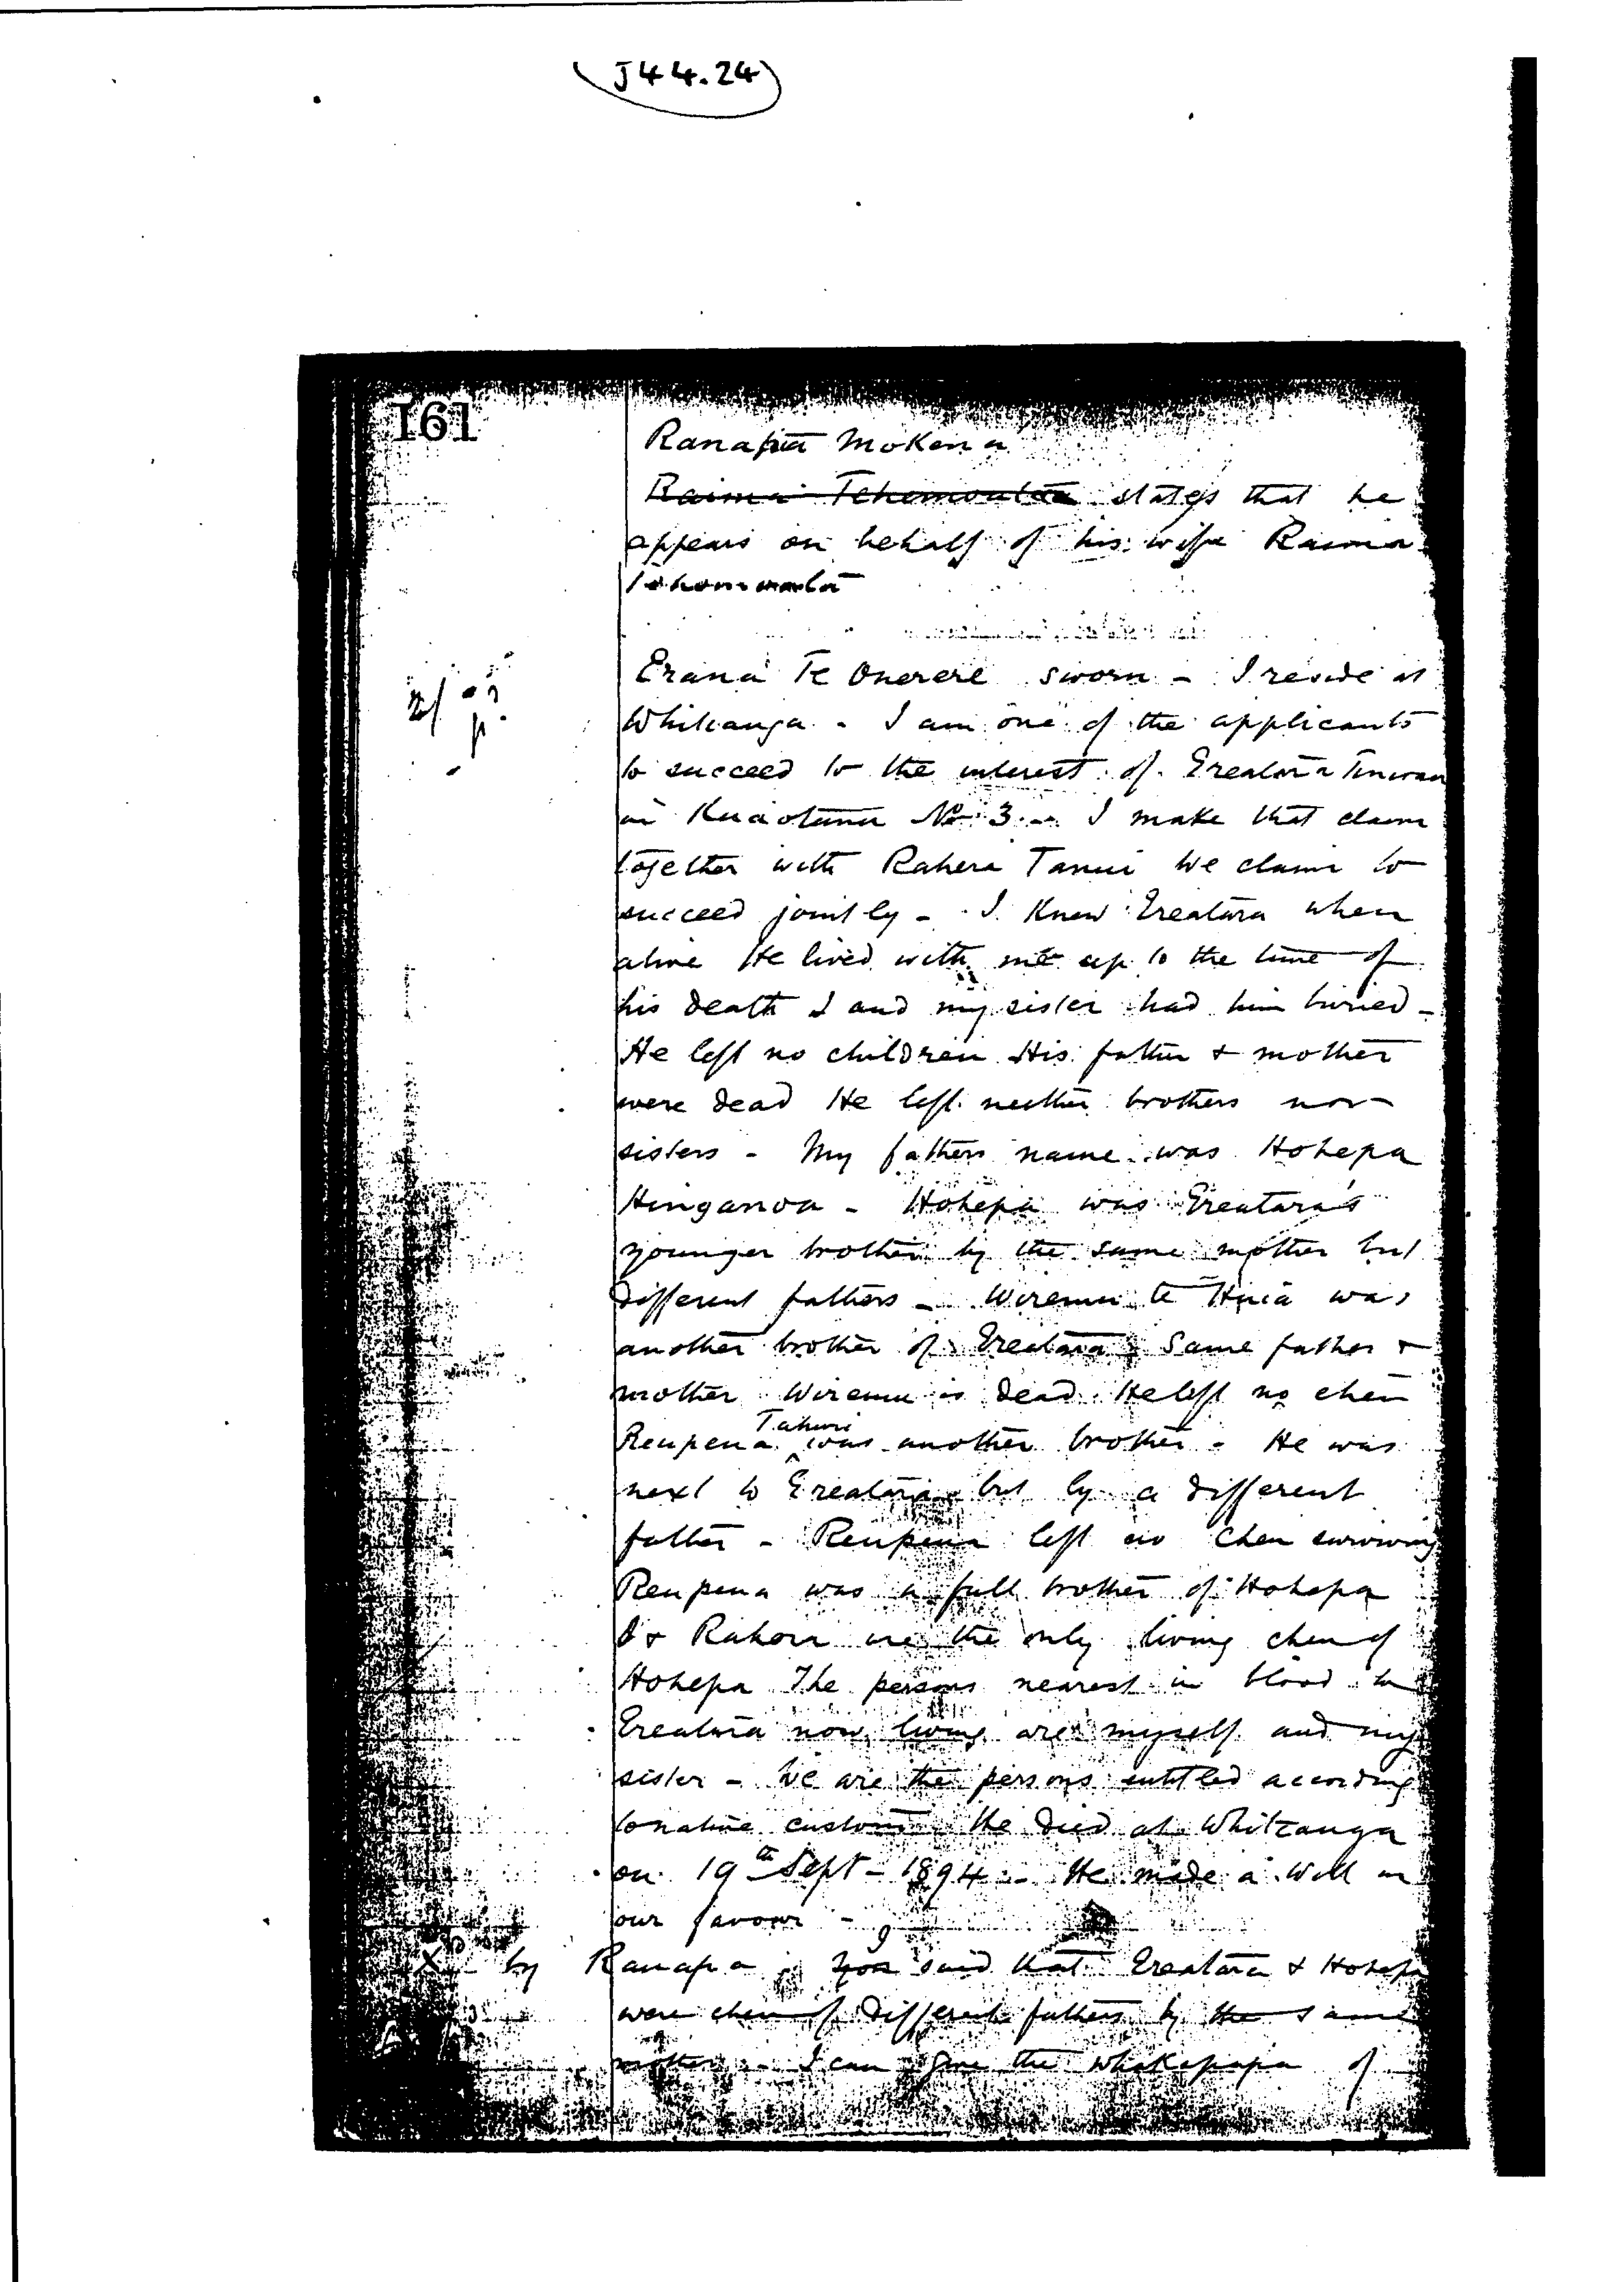 J44.24
161
Ranapia Mokena
Raima Tehemoutaa states that he
appears on behalf of his wife Raima
Erana Te Onerere sworn - I reside at
Whitianga - I am one of the applicants
to succeed to the interest of Ereatara
in Kuaotunu No 3 - I make that claim
together with Rahera Tanui We claim to
succeed jointly - I knew Ereatara when
alive He lived with me up to the time of
his death I and my sister had him buried -
He left no children His father + mother
were dead He left neither brothers nor
sisters - My fathers name was Hohepa
Hinganoa - Hohepa was Ereatara's
younger brother by the same mother but
different fathers - Wiremu te Huia was
another brother of Ereatara Same father +
mother Wiremu is dead He left no chen
Reupena Tahuri was another brother - He was
next to Ereatara but by a different
father - Reupena left no chen surviving
Reupena was a full brother of Hohepa
I + Rahera are the only living chen of
Hohepa The persons nearest in blood to
Ereatara now living are myself and my
sister - We are the persons entitled according
to native custom He died at Whitianga
on 19th Sept - 1894 - He made a will in
our favour -
Xd by Ranapia I said that Ereatara + Hohepa
were chen of different fathers by the same
mother - I can give the whakapapa of